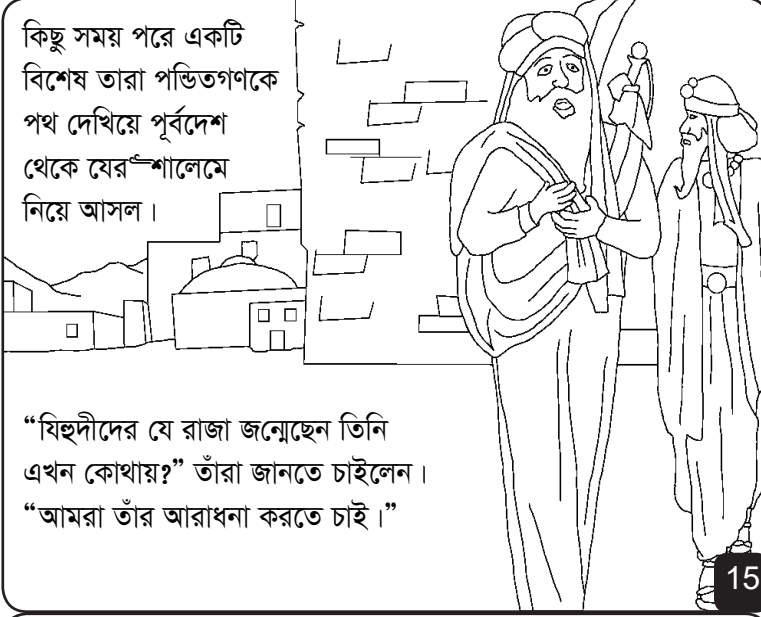 কিছু সময় পরে একটি
বিশেষ তারা পন্ডিতগণকে
পথ দেখিয়ে পূর্বদেশ
থেকে যেরুশালেমে
নিয়ে আসল।
“যিহুদীদের যে রাজা জন্মেছেন তিনি
এখন কোথায়?” তাঁরা জানতে চাইলেন।
“আমরা তাঁর আরাধনা করতে চাই।”
15